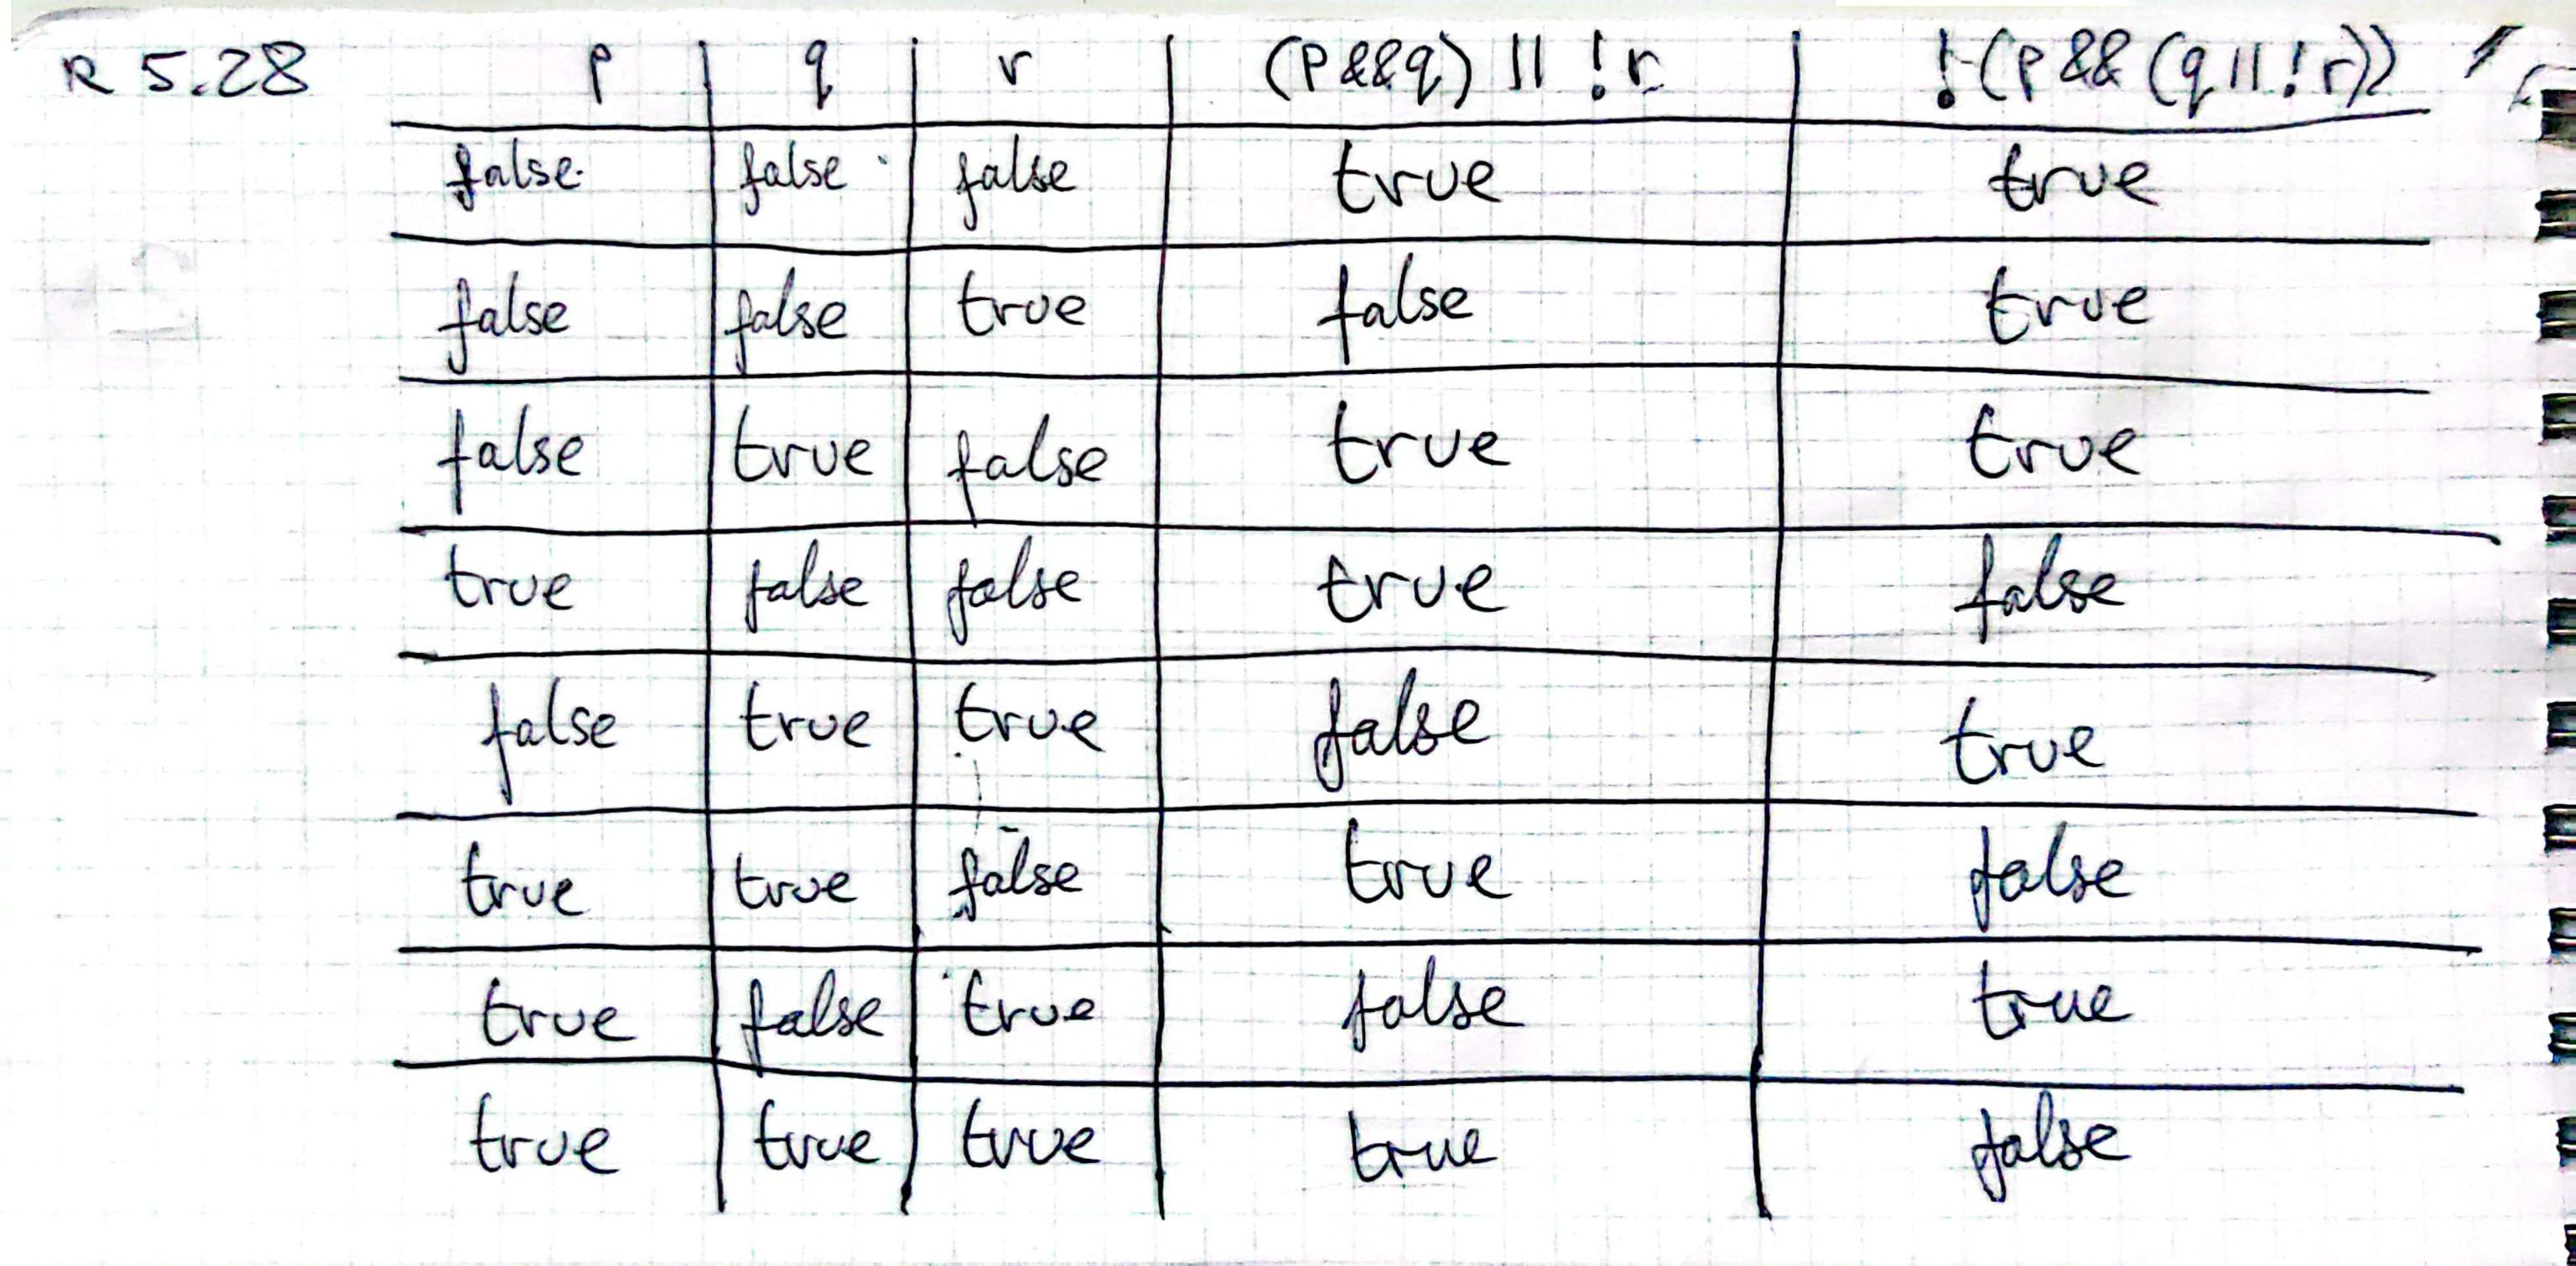 R 5.28 p q r (p&&q) || !r !(p && (q || !r))
false false false true true
false false true false true
false true false true true
true false false true false
false true true false true
true true false true false
true false true false true
true true true true false